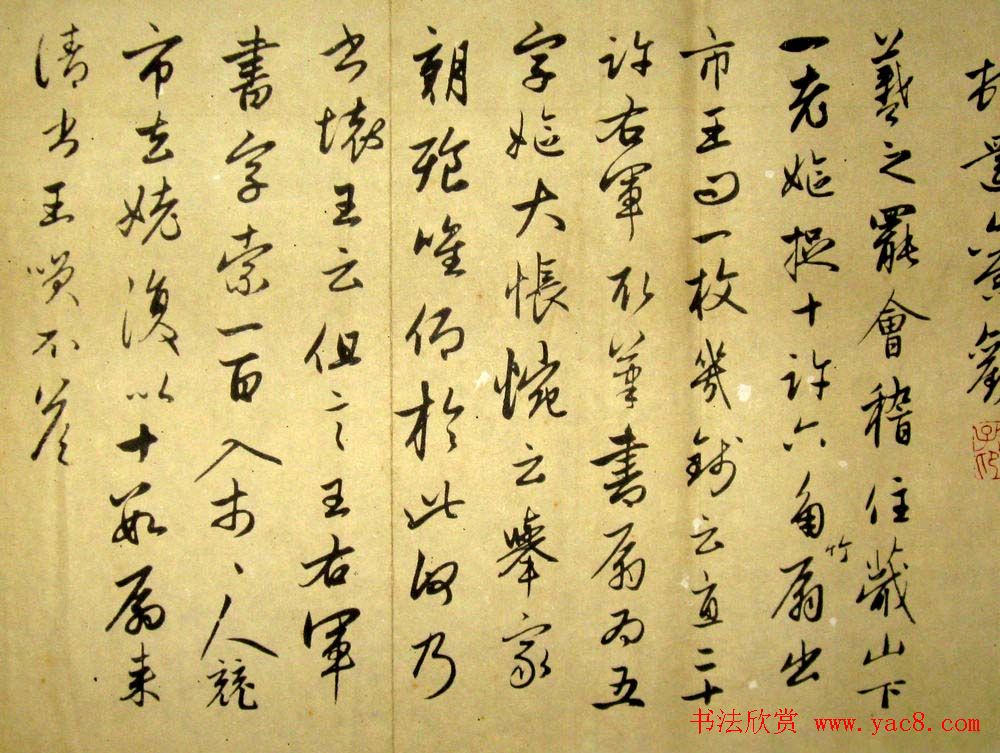 羲之罷會稽住蕺山下
一老嫗捉十許六角竹扇出
市王問一枚幾錢云直二十
許右軍取筆書扇為五
字嫗大悵惋云舉家
朝飱唯仰於此何乃
書壞王云但言王右軍
書字索一百入市〻人競
市去嫗復以十數扇來
請書王笑不答
书法欣赏 www.yac8.com